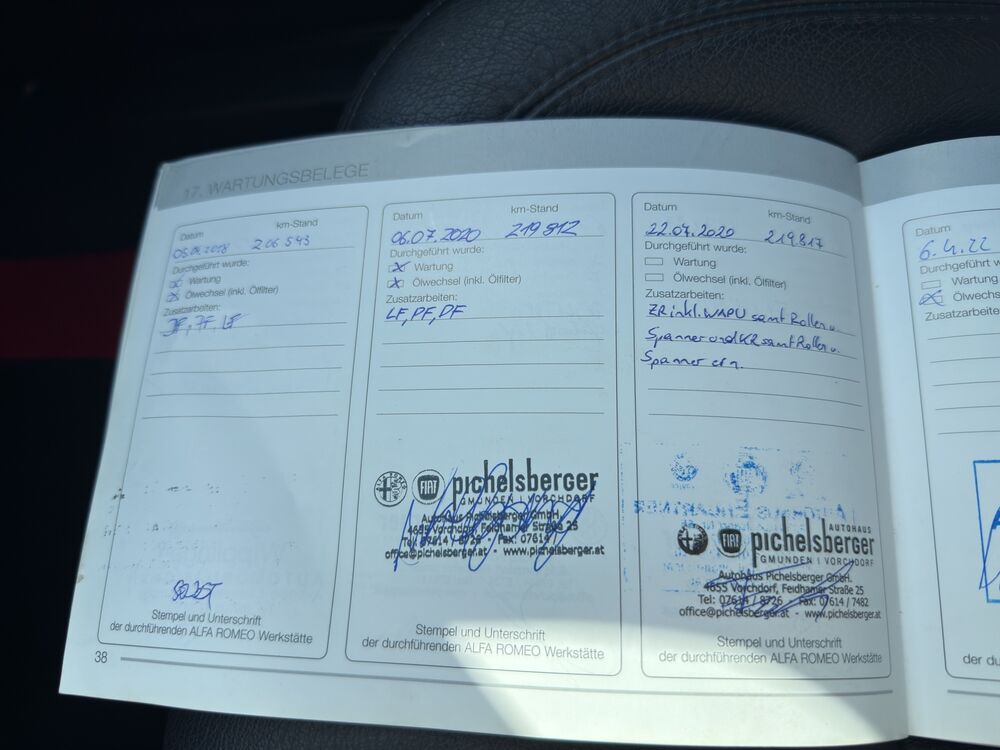 17. WARTUNGSBELEGE
Datum km-Stand
206 543
Durchgeführt wurde:
Wartung
Ölwechsel (inkl. Ölfilter)
Zusatzarbeiten:
Stempel und Unterschrift
der durchführenden ALFA ROMEO Werkstätte
38
Datum km-Stand
06.07.2020 219812
Durchgeführt wurde:
Wartung
Ölwechsel (inkl. Ölfilter)
Zusatzarbeiten:
LF, PF, DF
FIAT pichelsberger
GMUNDEN | VORCHDORF
Autohaus Pichelsberger GmbH.
4655 Vorchdorf, Feldhamer Straße 25
Tel: 07614 / 8726 - Fax: 07614 /
office@pichelsberger.at - www.pichelsberger.at
Stempel und Unterschrift
der durchführenden ALFA ROMEO Werkstätte
Datum km-Stand
22.07.2020 219.817
Durchgeführt wurde:
Wartung
Ölwechsel (inkl. Ölfilter)
Zusatzarbeiten:
ZR inkl. WAPU samt Rollen u.
Spanner und KR samt Rollen u.
Spanner ern.
AUTOHAUS
FIAT pichelsberger
GMUNDEN | VORCHDORF
Autohaus Pichelsberger GmbH.
4655 Vorchdorf, Feldhamer Straße 25
Tel: 07614 / 8726 Fax: 07614 / 7482
office@pichelsberger.at - www.pichelsberger.at
Stempel und Unterschrift
der durchführenden ALFA ROMEO Werkstätte
Datum
6.4.22
Durchgeführt w
Wartung
Ölwechs
Zusatzarbeite
der du